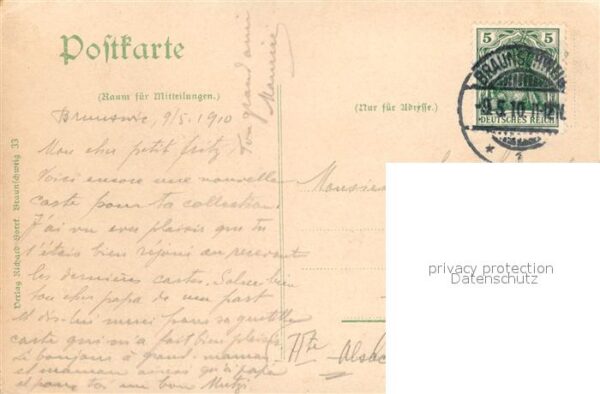 Postkarte
(Raum für Mitteilungen.)
(Nur für Adresse.)
5 5
DEUTSCHES REICH
BRAUNSCHWEIG
-9.5.10
* 1
Brunswic, 9/5. 1910
Mon cher petit Fritz!
Voici encore une nouvelle
carte pour ta collection.
J'ai vu avec plaisir que tu
t'étais bien réjoui en recevant
les dernières cartes. Salue bien
ton cher papa de ma part
et dis-lui merci pour sa gentille
carte qui m'a fait bien plaisir.
Le bonjour à grand-maman
et maman ainsi qu'à papa
et pour toi un bon Mutzi
Ton grand ami
Maurice
Monsieur
Hte
Alsac
Verlag Richard Borek, Braunschweig 33
privacy protection
Datenschutz